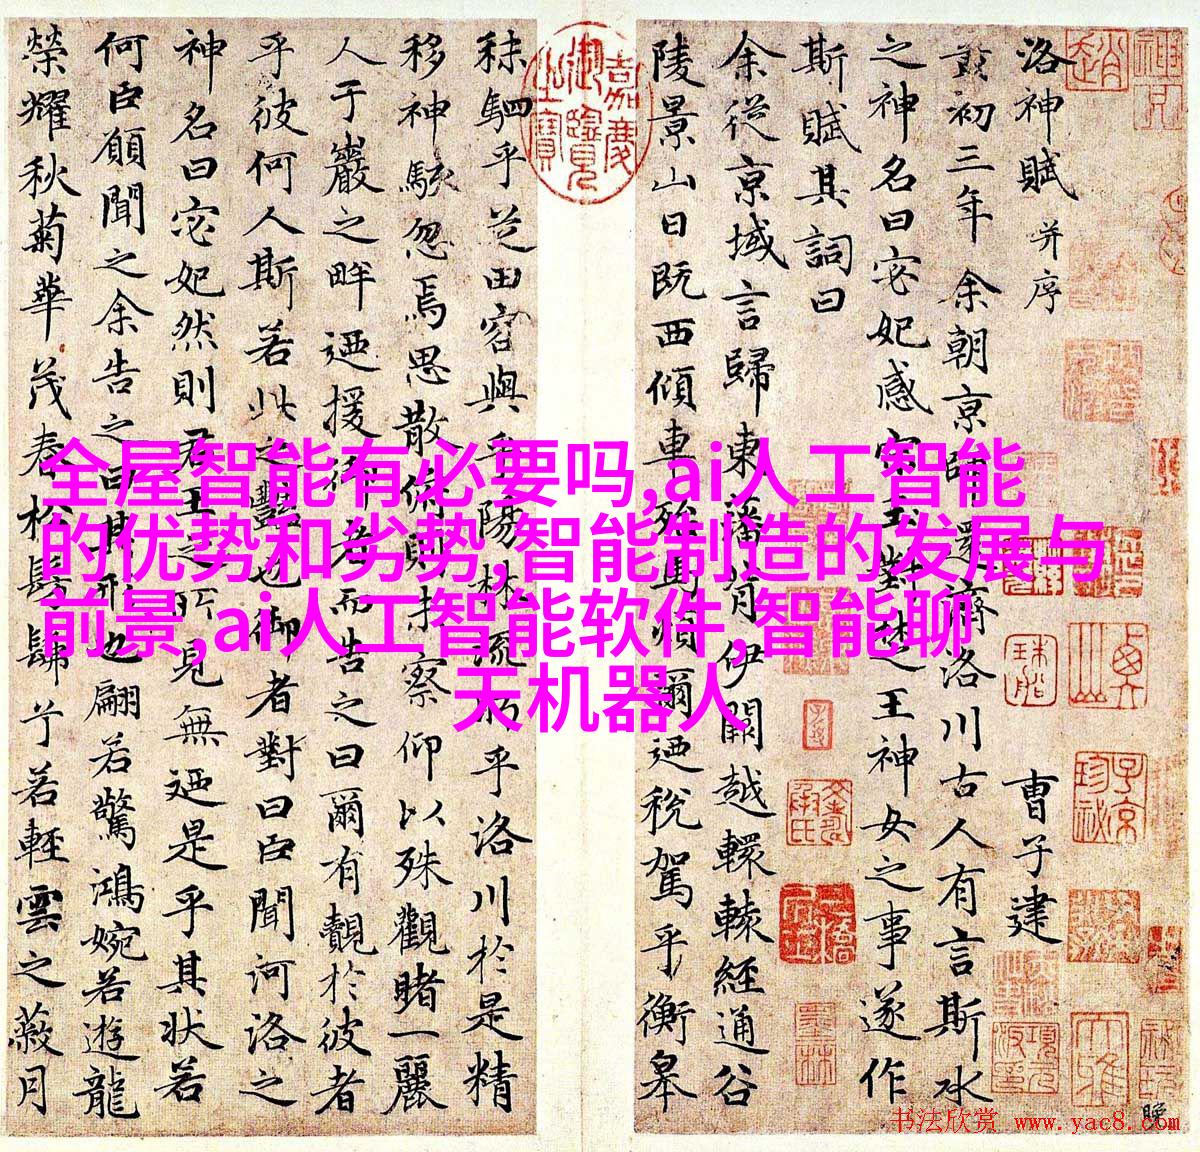 洛神賦 并序 曹子建
黃初三年余朝京師還濟洛川古人有言斯水
之神名曰宓妃感宋玉對楚王神女之事遂作
斯賦其詞曰
余從京域言歸東藩背伊闕越轘轅經通谷
陵景山日既西傾車殆馬煩爾迺稅駕乎衡皋
嘉慶御覽之寶
秣駟乎芝田容與乎陽林流眄乎洛川於是精
移神駭忽焉思散俯則未察仰以殊觀睹一麗
人于巖之畔迺援御者而告之曰爾有覿於彼者
乎彼何人斯若此之豔也御者對曰臣聞河洛之
神名曰宓妃然則君王之所見無迺是乎其狀若
何臣願聞之余告之曰其形也翩若驚鴻婉若遊龍
榮耀秋菊華茂春松髣髴兮若輕雲之蔽月
全屋智能有必要吗,ai人工智能
的优势和劣势,智能制造的发展与
前景,ai人工智能软件,智能聊
天机器人
书法欣赏 www.yac8.com